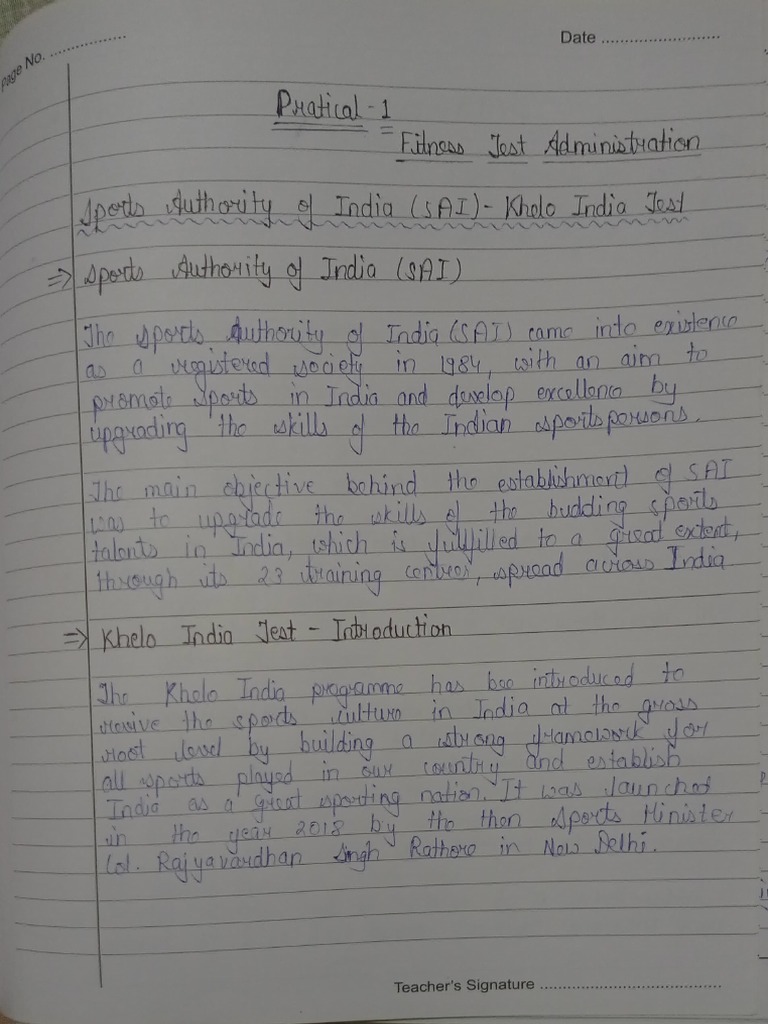 Page No. ..................
Date ........................
Pratical - 1
Fitness Test Administration
Sports Authority of India (SAI) - Khelo India Test
⇒ Sports Authority of India (SAI)
The Sports Authority of India (SAI) came into existence
as a registered society in 1984, with an aim to
promote sports in India and develop excellence by
upgrading the skills of the Indian sportspersons.
The main objective behind the establishment of SAI
was to upgrade the skills of the budding sports
talents in India, which is fulfilled to a great extent,
through its 23 training centres, spread across India
⇒ Khelo India Test - Introduction
The Khelo India programme has bee introduced to
revive the sports culture in India at the grass
root level by building a strong framework for
all sports played in our country and establish
India as a great sporting nation. It was launched
in the year 2018 by the then Sports Minister
Col. Rajyavardhan Singh Rathore in New Delhi.
Teacher's Signature ........................................